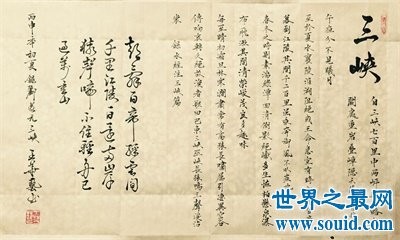 三峽
自三峽七百里中兩岸連山
闕處重岩疊嶂隱天
午夜分不見曦月
至於夏水襄陵沿泝阻絕或王命急宣有時
暮到江陵其間千二百里雖乘奔御風不以疾也
春冬之時則素湍綠潭回清倒影絕巘多生怪柏懸泉瀑
布飛漱其間清榮峻茂良多趣味
每至晴初霜旦林寒澗肅常有高猿長嘯屬引淒異空谷
傳響哀轉久絕故漁者歌曰巴東三峽巫峽長猿鳴三聲淚沾
裳 水經注三峽篇
朝辭白帝彩雲間
千里江陵一日還兩岸
猿聲啼不住輕舟已
過萬重山
丙申年初夏錄
世界之最网
www.souid.com